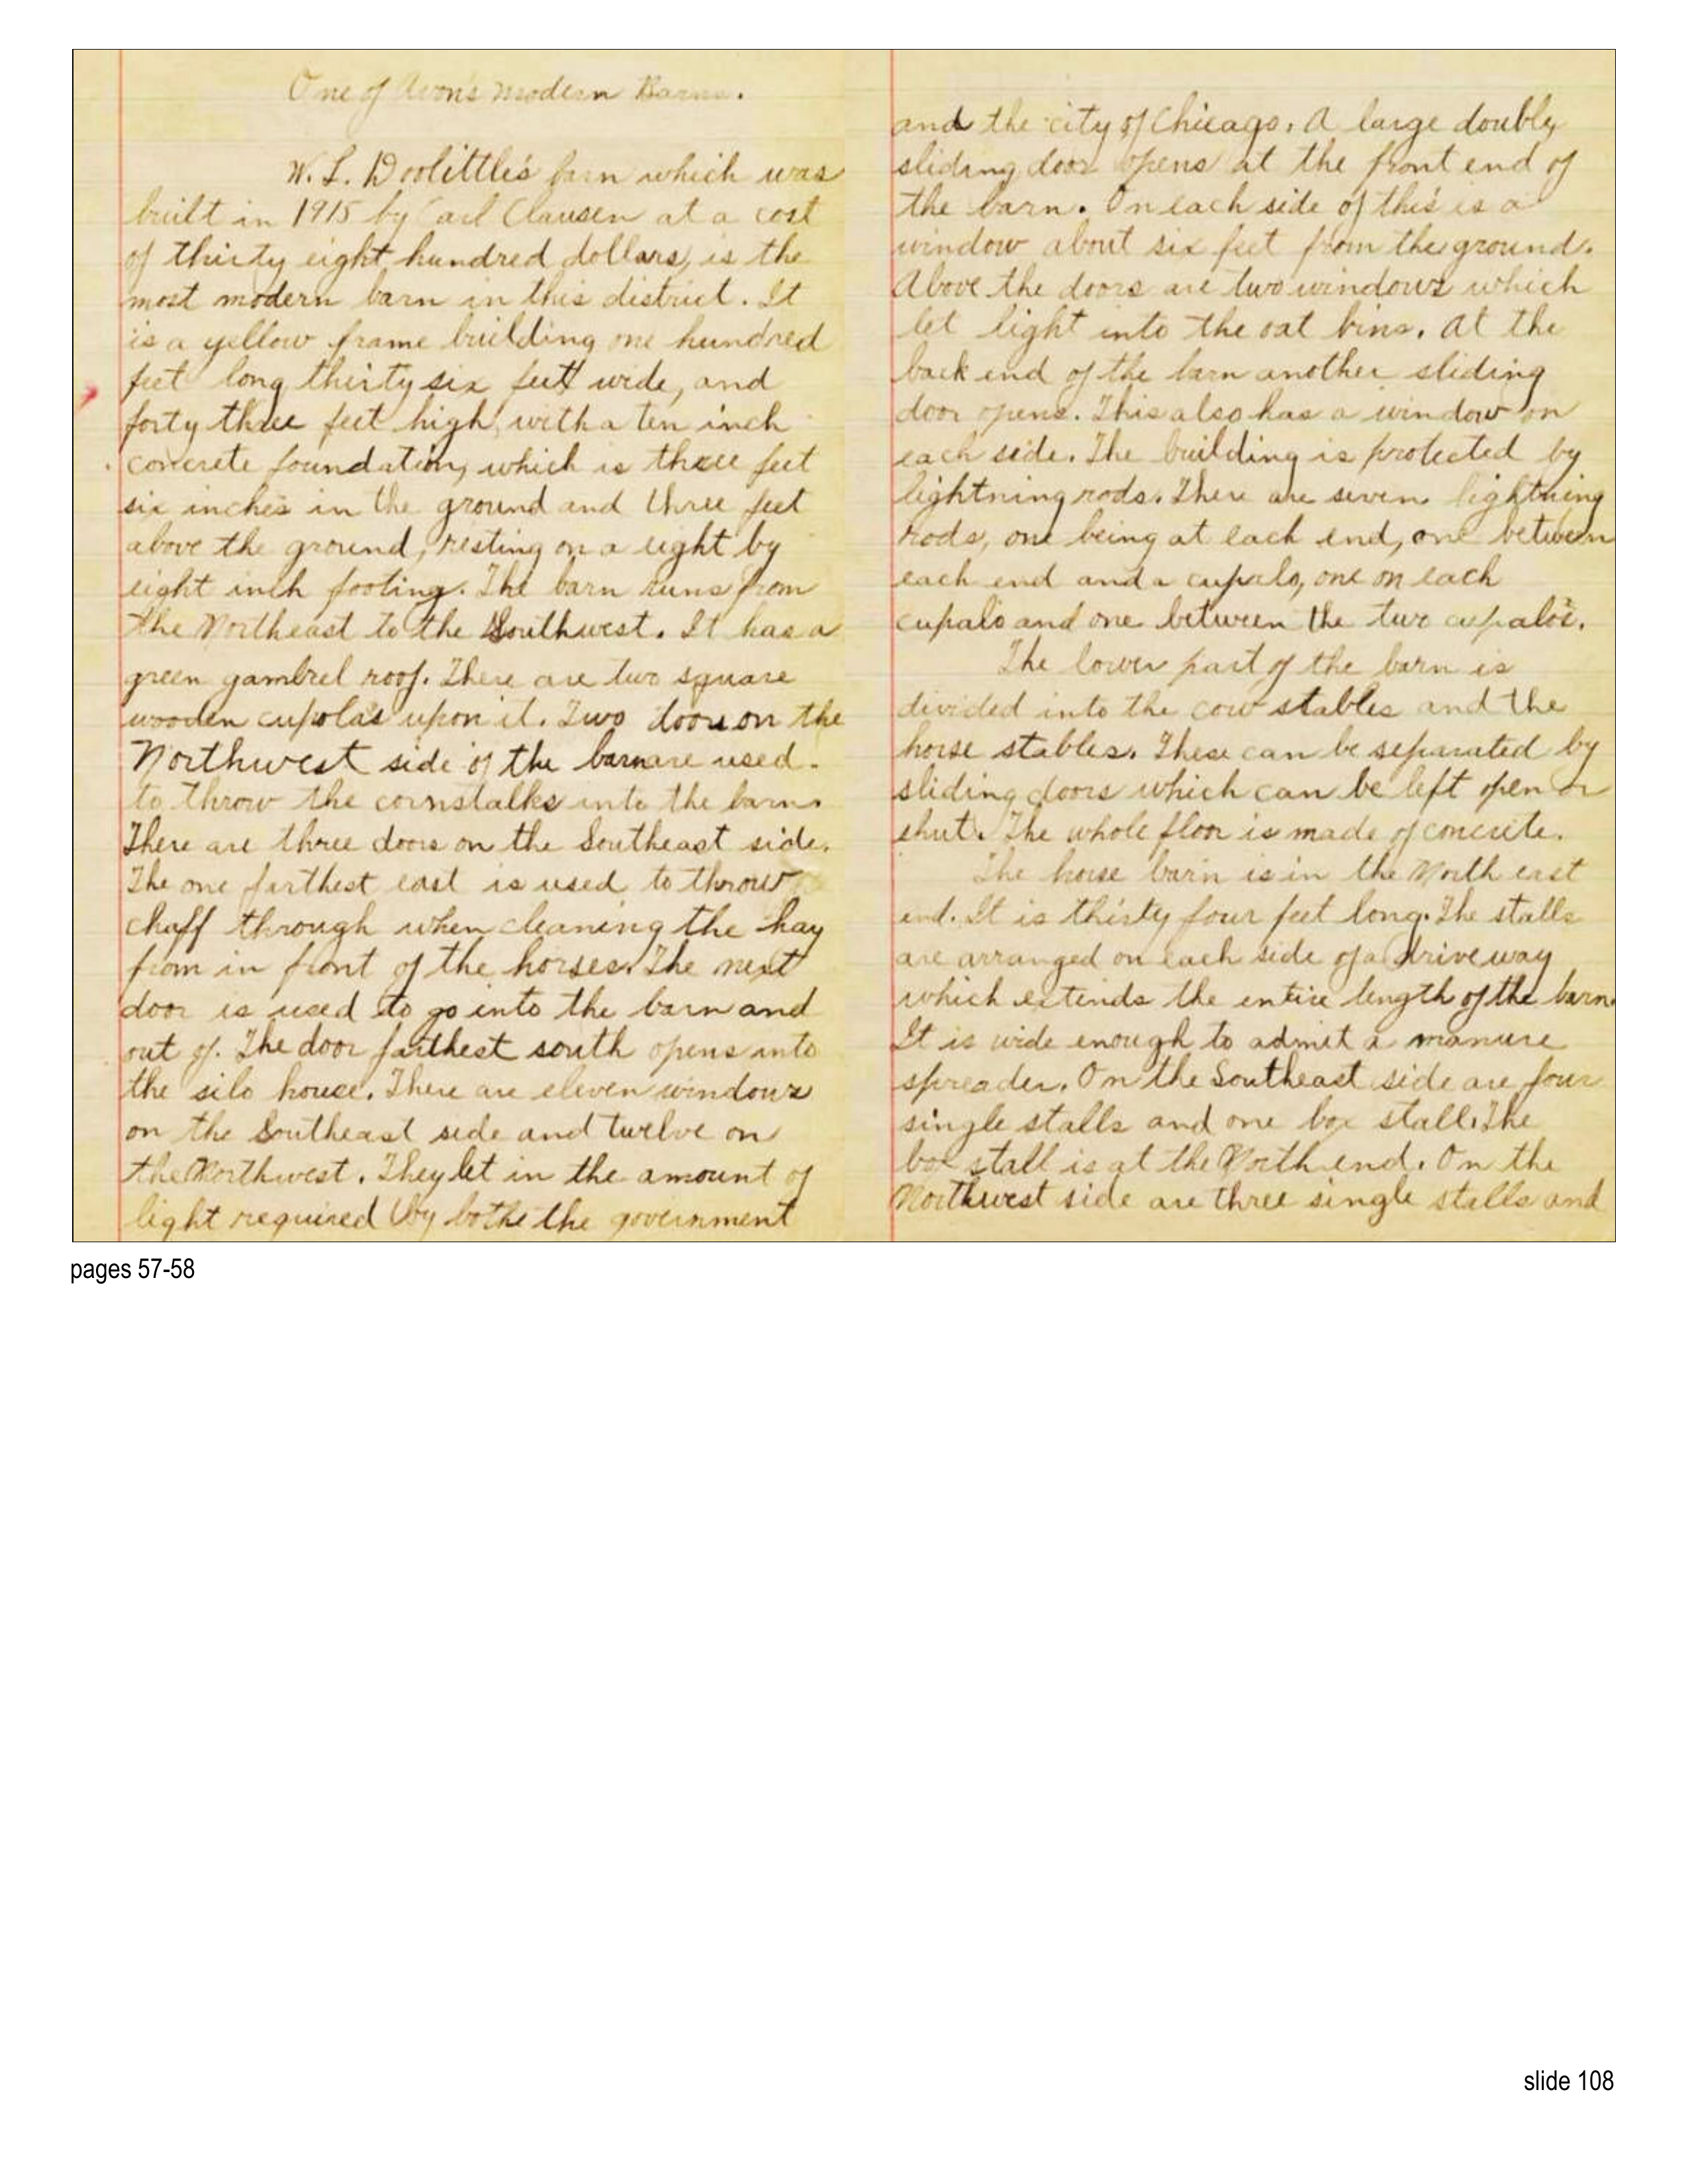 One of Avon's Modern Barns.
W. L. Doolittle's barn which was
built in 1915 by Carl Clausen at a cost
of thirty eight hundred dollars, is the
most modern barn in this district. It
is a yellow frame building one hundred
feet long thirty six feet wide, and
forty three feet high, with a ten inch
concrete foundation, which is three feet
six inches in the ground and three feet
above the ground, resting on a eight by
eight inch footing. The barn runs from
the Northeast to the Southwest. It has a
green gambrel roof. There are two square
wooden cupolas upon it. Two doors on the
Northwest side of the barn are used
to throw the cornstalks into the barn.
There are three doors on the Southeast side.
The one farthest east is used to throw
chaff through when cleaning the hay
from in front of the horses. The next
door is used to go into the barn and
out of. The door farthest south opens into
the silo house. There are eleven windows
on the Southeast side and twelve on
the Northwest. They let in the amount of
light required by bothe the government
and the city of Chicago. A large doubly
sliding door opens at the front end of
the barn. On each side of this is a
window about six feet from the ground.
Above the doors are two windows which
let light into the oat bins. At the
back end of the barn another sliding
door opens. This also has a window on
each side. The building is protected by
lightning rods. There are seven lightning
rods, one being at each end, one between
each end and a cupalo, one on each
cupalo and one between the two cupalos.
The lower part of the barn is
divided into the cow stables and the
horse stables. These can be separated by
sliding doors which can be left open or
shut. The whole floor is made of concrete.
The horse barn is in the North east
end. It is thirty four feet long. The stalls
are arranged on each side of a driveway
which extends the entire length of the barn.
It is wide enough to admit a manure
spreader. On the Southeast side are four
single stalls and one box stall. The
box stall is at the North end. On the
Northwest side are three single stalls and
pages 57-58
slide 108